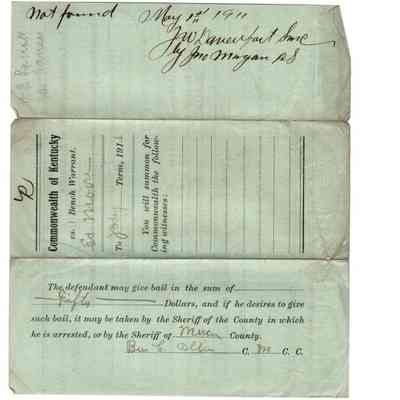 Not found May 1st 1911
J W Davenport
by Jno Morgan D S
Commonwealth of Kentucky
vs. Bench Warrant.
Ed Moore
To July Term, 191
You will summon for
Commonwealth the follow-
ing witnesses:
The defendant may give bail in the sum of
Fifty Dollars, and if he desires to give
such bail, it may be taken by the Sheriff of the County in which
he is arrested, or by the Sheriff of Mercer County.
Ben C. Allin C. M C. C.